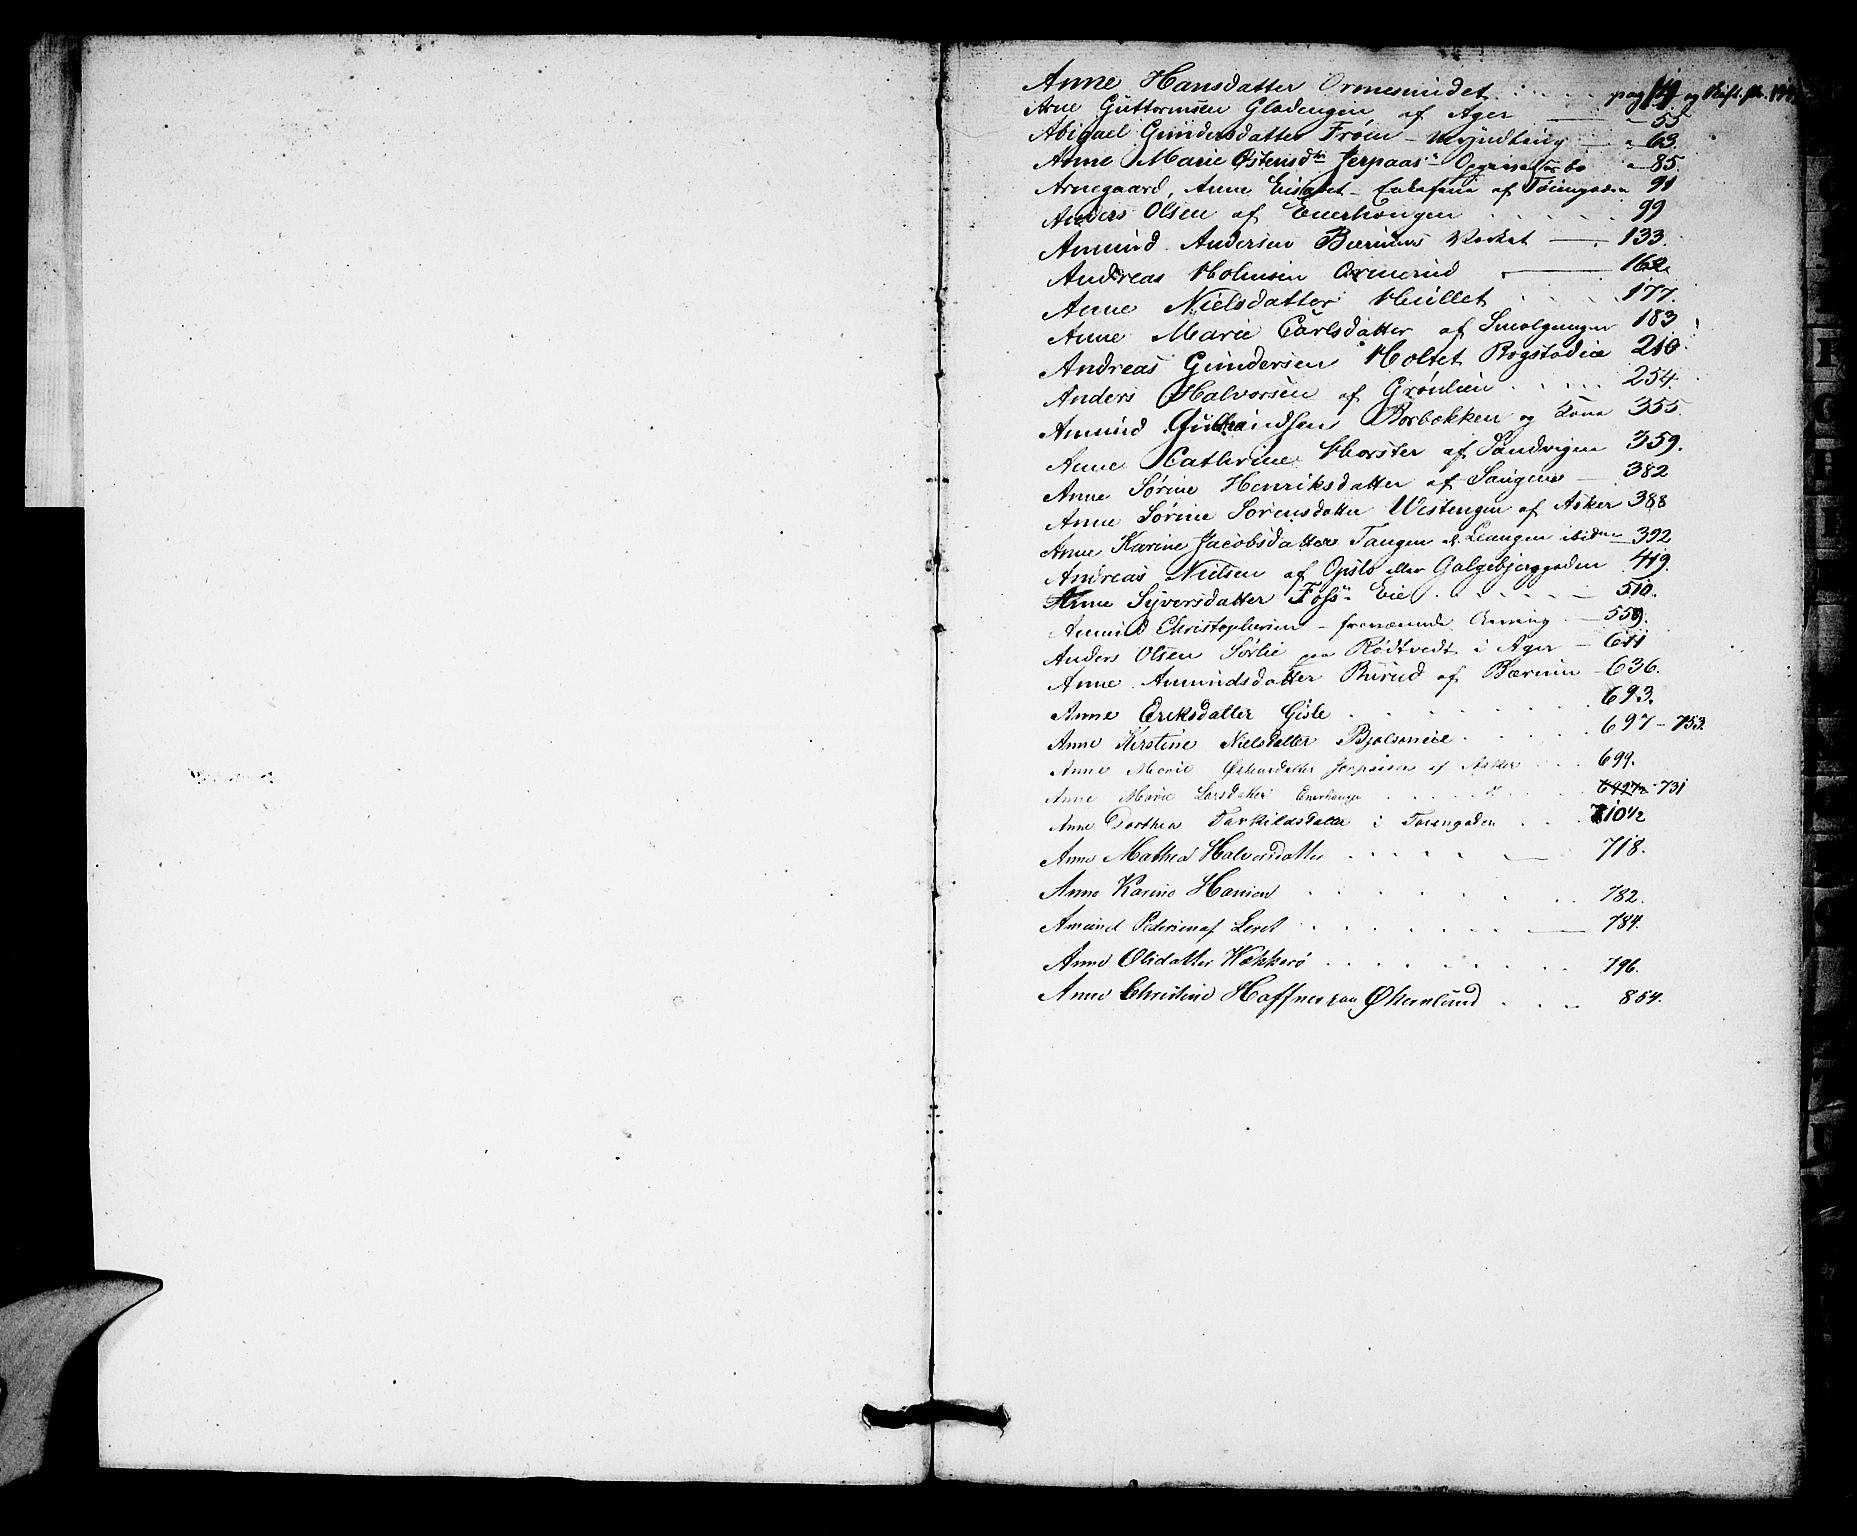 Anne Hansdatter Ormesundet . . . pag
Arne Guttormsen Gladengen af Ager — 55
Abigael Gundersdatter Frøen - Myndling — " 63.
Anne Marie Østensdtr Jerpaas - bo " 85.
Arnegaard, Anne Lisabet - af Tøiengaden 91
Anders Olsen af Enerhougen . . . . 99
Amund Andersen Bærums Værket — 133.
Andreas Holmsen Ormerud — 162.
Anne Nielsdatter Hullet . . . . 177.
Anne Marie Carlsdatter af Smolgangen 183
Andreas Gundersen Holtet Bogstadeie 210.
Anders Halvorsen af Grønlien . . . . 254.
Amund Gulbrandsen Borbækken og Kone 355.
Anne Cathrine Horster af Sandvigen 359.
Anne Sørine Henriksdatter af Saugene — 382
Anne Sørine Sørensdatter Westengen af Asker 388
Anne Karine Jacobsdatter Tangen af Leangen ibidm — 392
Andreas Nielsen af Opslo eller Galgebjerggaden 419.
Anne Syversdatter Foss Eie . . . . 510.
Amund Christophersen - Arning — 559.
Anders Olsen Sørlie paa Rødtvedt i Ager — 611
Anne Amundsdatter Burud af Bærum — 636.
Anne Eriksdatter Gisle . . . . 693.
Anne Kirstine Nielsdatter Bjølseneie . . . . 697 - 753.
Anne Marie Østensdatter Jerpaasen af Asker . . . 699.
Anne Marie Larsdatter Enerhaugen . . . . 731
Anne Dorthea Tarkildsdatter i Tøiengaden . . . 710½
Anne Mathea Halvorsdatter . . . . 718.
Anne Karine Hansen . . . . 782.
Amund Pedersen af Leret . . . . 784.
Anne Olsdatter Hækkerø . . . . 796.
Anne Christine Haffner paa Økernlund . . . 854.